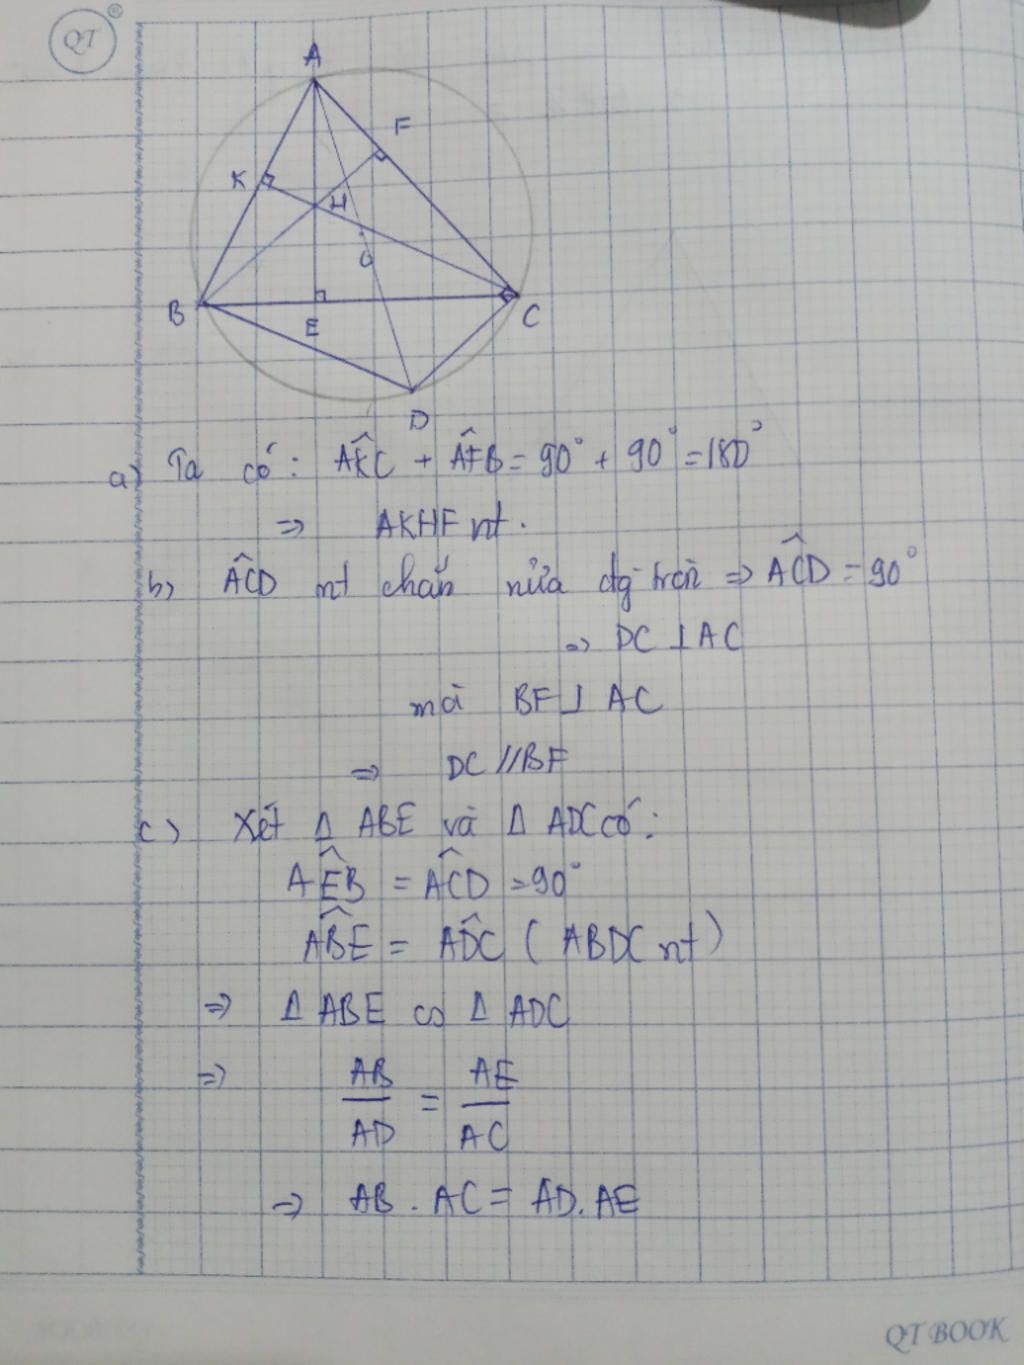 QT ®
A
F
K
H
O
B
E
C
D
a) Ta có: AK̂C + AF̂B = 90° + 90° = 180°
=> AKHF nt.
b) AĈD nt chắn nửa đg tròn => AĈD = 90°
=> DC ⊥ AC
mà BF ⊥ AC
=> DC // BF
c) Xét Δ ABE và Δ ADC có:
AÊB = AĈD = 90°
AB̂E = AD̂C ( ABDC nt )
=> Δ ABE ∽ Δ ADC
=> AB/AD = AE/AC
=> AB . AC = AD. AE
QT BOOK